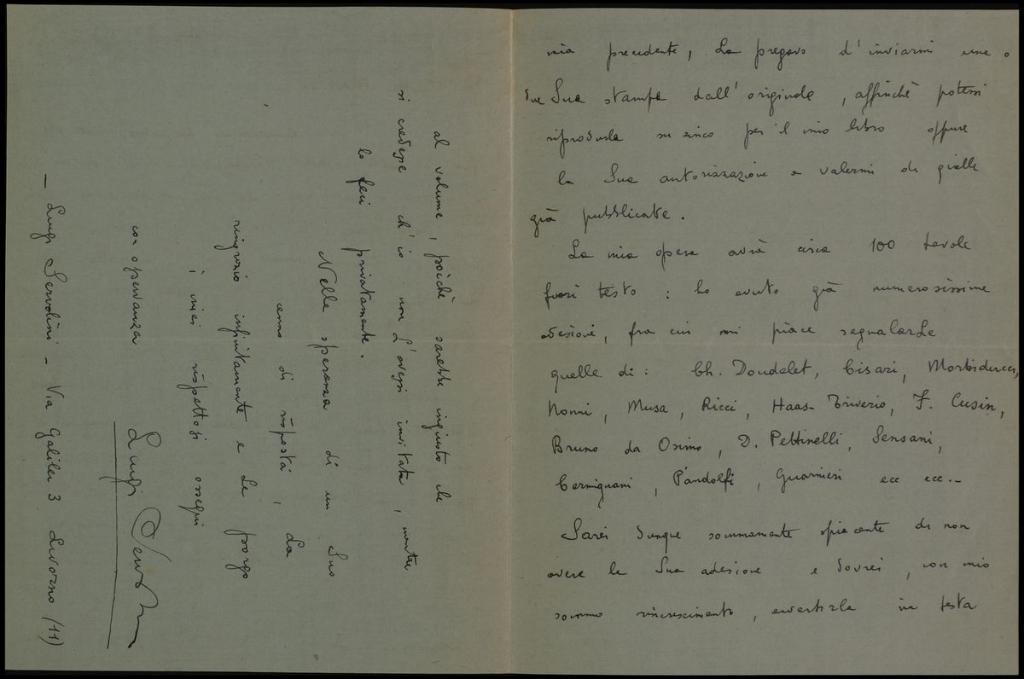 mia precedente, La pregavo d'inviarmi una o
due Sue stampe dall'originale, affinchè potessi
riprodurle su zinco per il mio libro oppure
la Sua autorizzazione a valermi di quelle
già pubblicate.
La mia opera avrà circa 100 tavole
fuori testo: ho avuto già numerosissime
adesioni, fra cui mi piace segnalarLe
quelle di: Ch. Doudelet, Cisari, Morbiducci,
Nonni, Musa, Ricci, Haas-Triverio, F. Cusin,
Bruno da Osimo, D. Pettinelli, Sensani,
Cermignani, Pandolfi, Guarnieri ecc ecc.-
Sarei dunque sommamente spiacente di non
avere la Sua adesione e dovrei, con mio
sommo rincrescimento, avvertirla in testa
al volume, poichè sarebbe ingiusto che
si credesse ch'io non L'avessi invitata, mentre
lo feci privatamente.
Nella speranza di un Suo
cenno di risposta, La
ringrazio infinitamente e Le porgo
i miei rispettosi ossequi
con osservanza
Luigi Servolini
- Luigi Servolini - Via Galilei 3 Livorno (11)